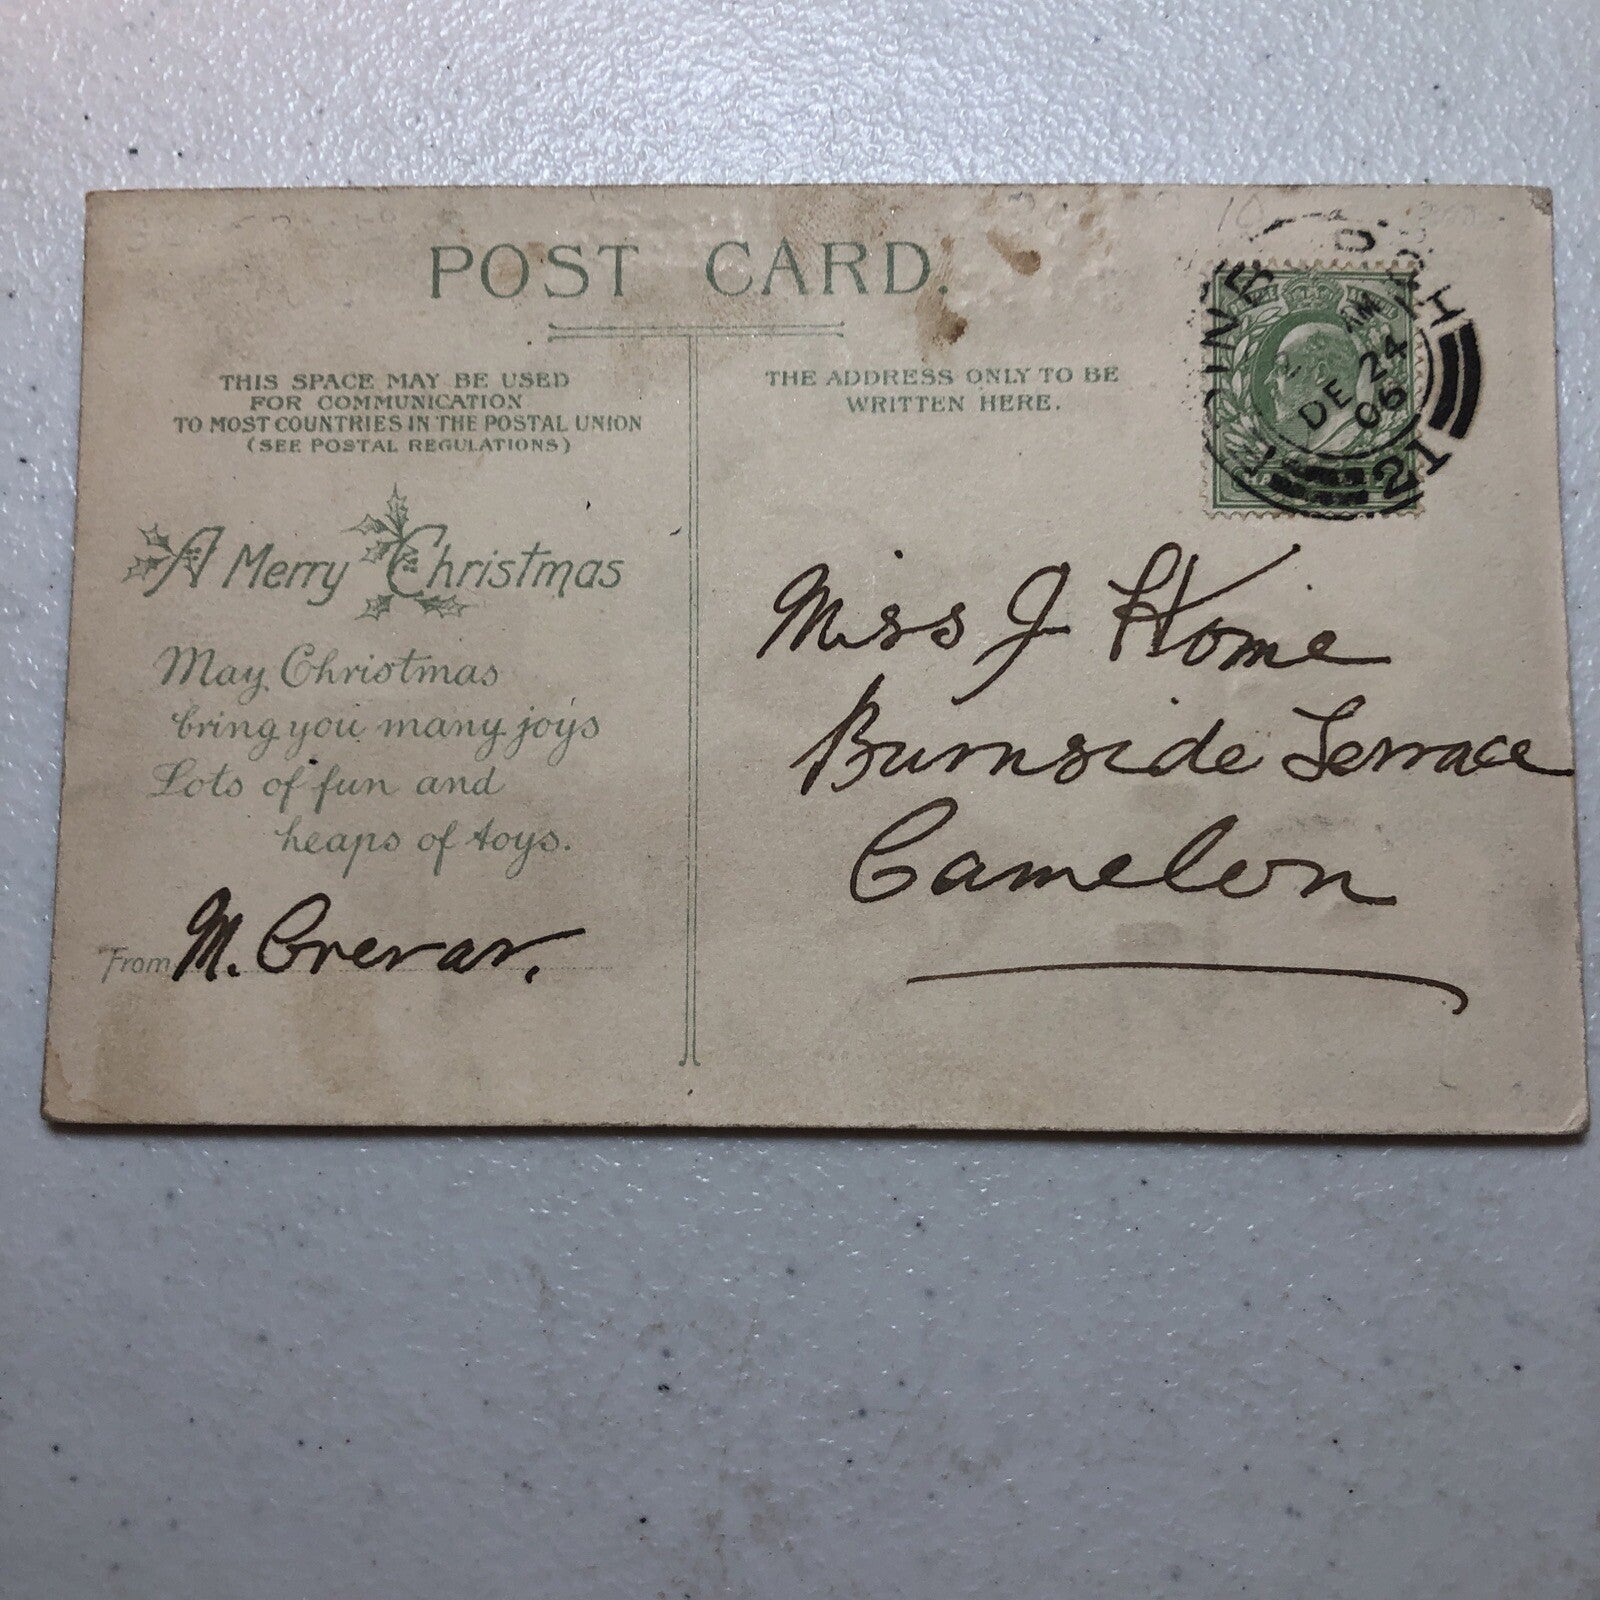 POST CARD.
THIS SPACE MAY BE USED
FOR COMMUNICATION
TO MOST COUNTRIES IN THE POSTAL UNION
(SEE POSTAL REGULATIONS)
A Merry Christmas
May Christmas
bring you many joys
Lots of fun and
heaps of toys.
From M. Crerar.
THE ADDRESS ONLY TO BE
WRITTEN HERE.
EDINBURGH
AM
DE 24
06
21
Miss J Home
Burnside Terrace
Camelon